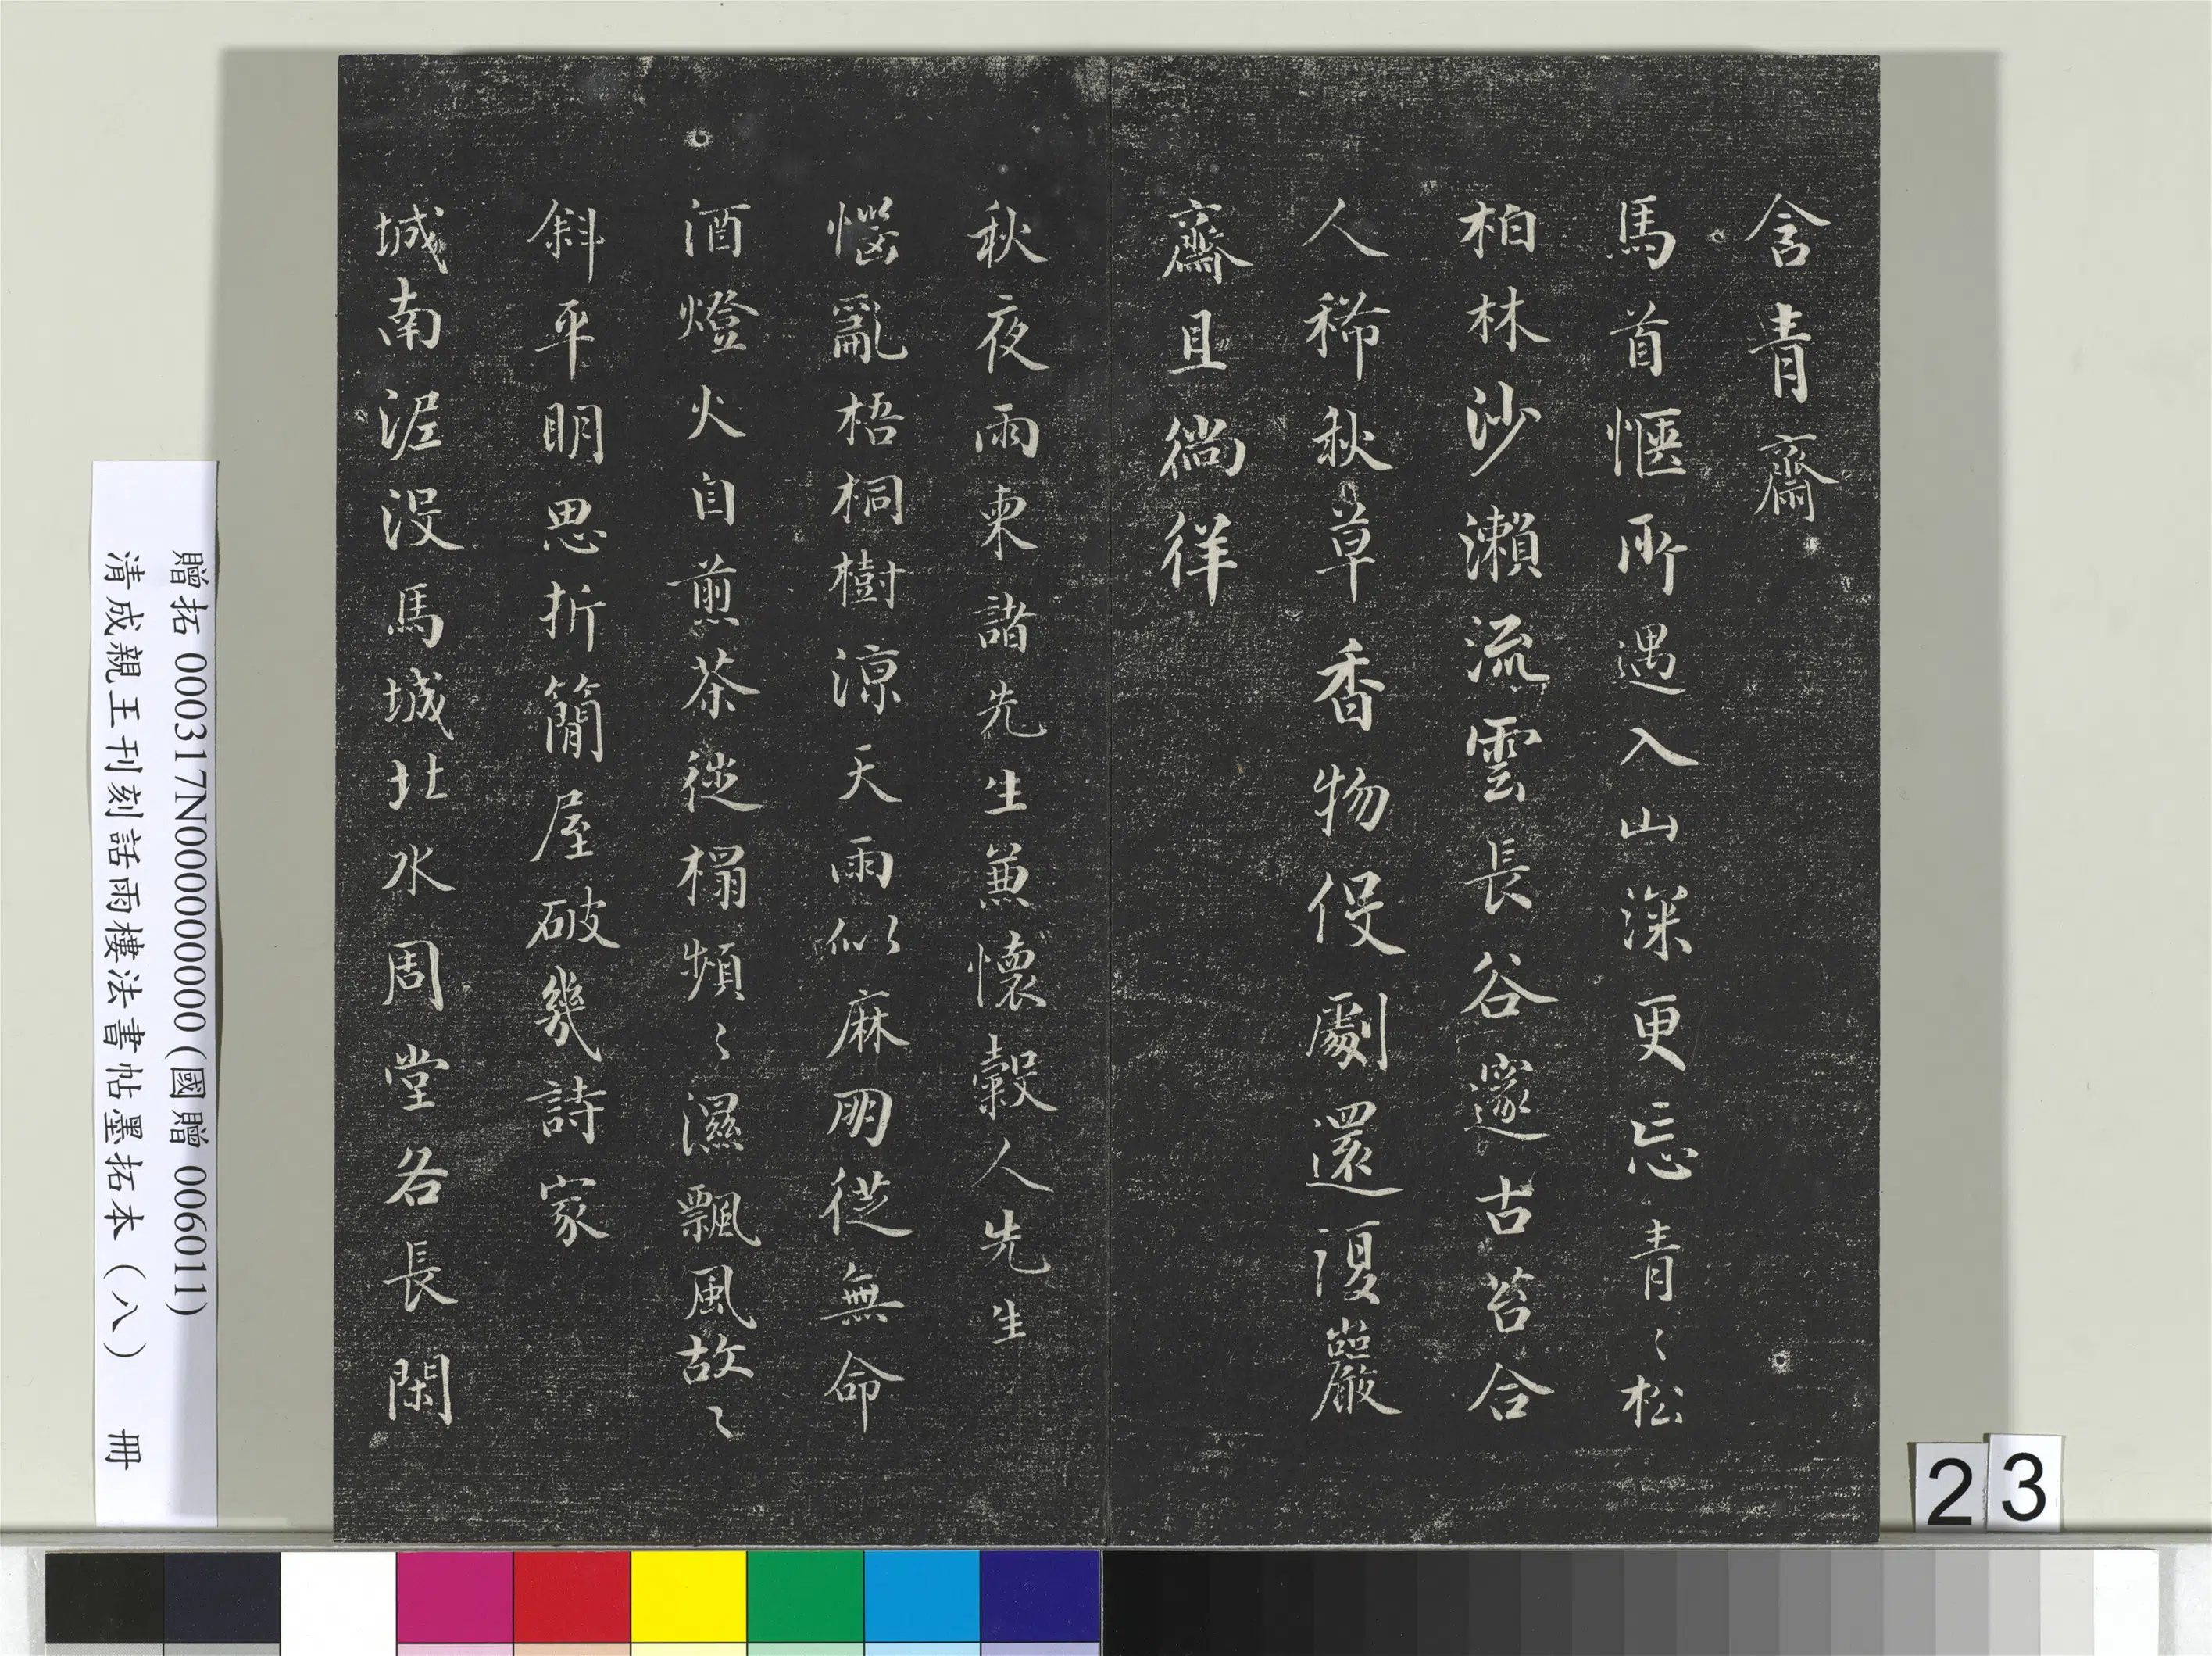 含青齋
馬首愜所遇入山深更忘青〻松
柏林沙瀨流雲長谷邃古苔合
人稀秋草香物侵劇還復巖
齋且徜徉
秋夜雨柬諸先生兼懷穀人先生
惱亂梧桐樹涼天雨似麻朋從無命
酒燈火自煎茶徙榻頻〻濕飄風故〻
斜平明思折簡屋破幾詩家
城南泥沒馬城北水周堂各長閑
贈拓 000317N000000000 (國贈 006011)
清成親王刊刻話雨樓法書帖墨拓本（八） 冊
23